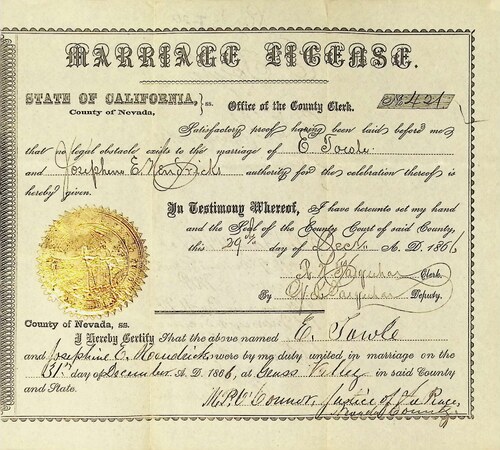 MARRIAGE LICENSE.
STATE OF CALIFORNIA, } ss. Office of the County Clerk. No 421
County of Nevada,
Satisfactory proof having been laid before me
that no legal obstacle exists to the marriage of E Towle
and Josephine E. Kendricks authority for the celebration thereof is
hereby given.
In Testimony Whereof, I have hereunto set my hand
and the Seal of the County Court of said County,
this 29th day of Decr A. D. 1866
Clerk.
By Deputy.
County of Nevada, ss.
I Hereby Certify That the above named E. Towle
and Josephine E. Kendricks were by me duly united in marriage on the
31st day of December A. D. 1866, at Grass Valley in said County
and State.
M.P. O'Connor, Justice of the Peace,
Nevada County